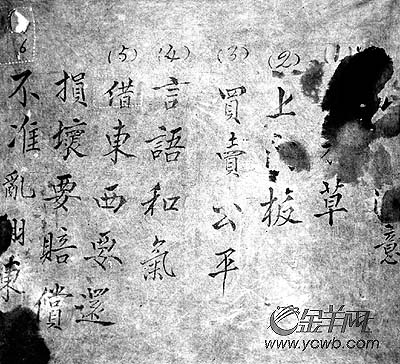 意
(1) 草
(2) 上門板
(3) 買賣公平
(4) 言語和氣
(5) 借東西要還
損壞要賠償
6 不准亂用東
金羊网
www.ycwb.com